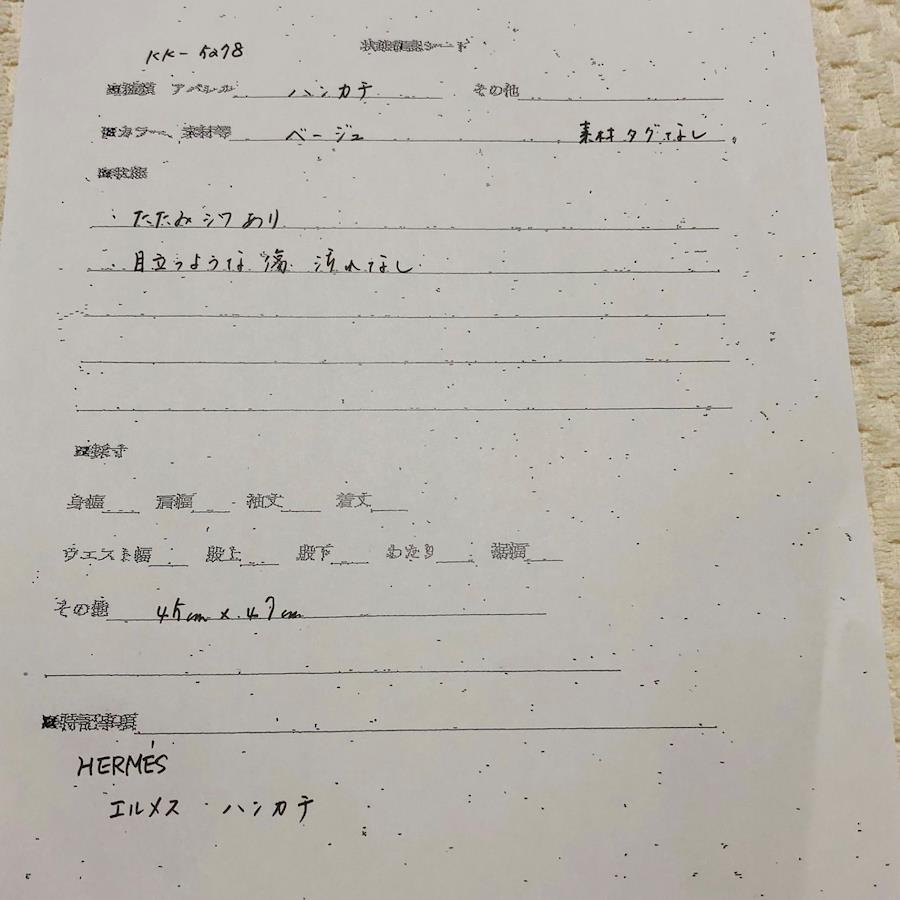 KK-5278 状態確認シート
■種類 アパレル ハンカチ その他
■カラー、素材等 ベージュ 素材タグなし。
■状態
・たたみジワあり
・目立つような傷 汚れなし
■採寸
身幅 肩幅 袖丈 着丈
ウエスト幅 股上 股下 わたり 裾幅
その他 45cm×47cm
■特記事項
HERMÈS
エルメス ハンカチ